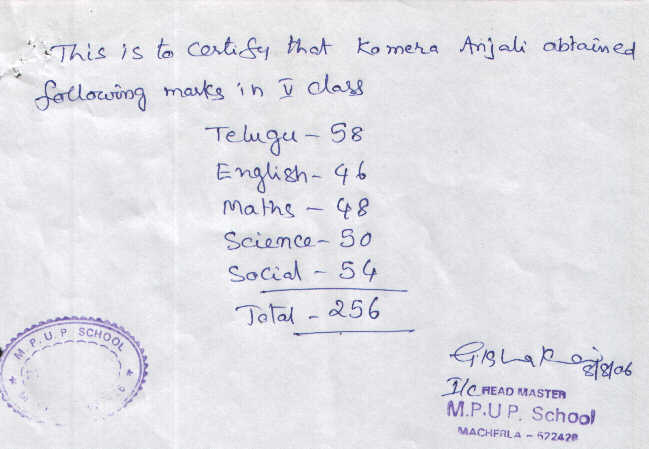 This is to certify that Komera Anjali obtained
following marks in V class
Telugu - 58
English - 46
Maths - 48
Science - 50
Social - 54
Total - 256
M. P. U. P. SCHOOL
8/8/06
I/C HEAD MASTER
M.P.U P. School
MACHERLA - 522426